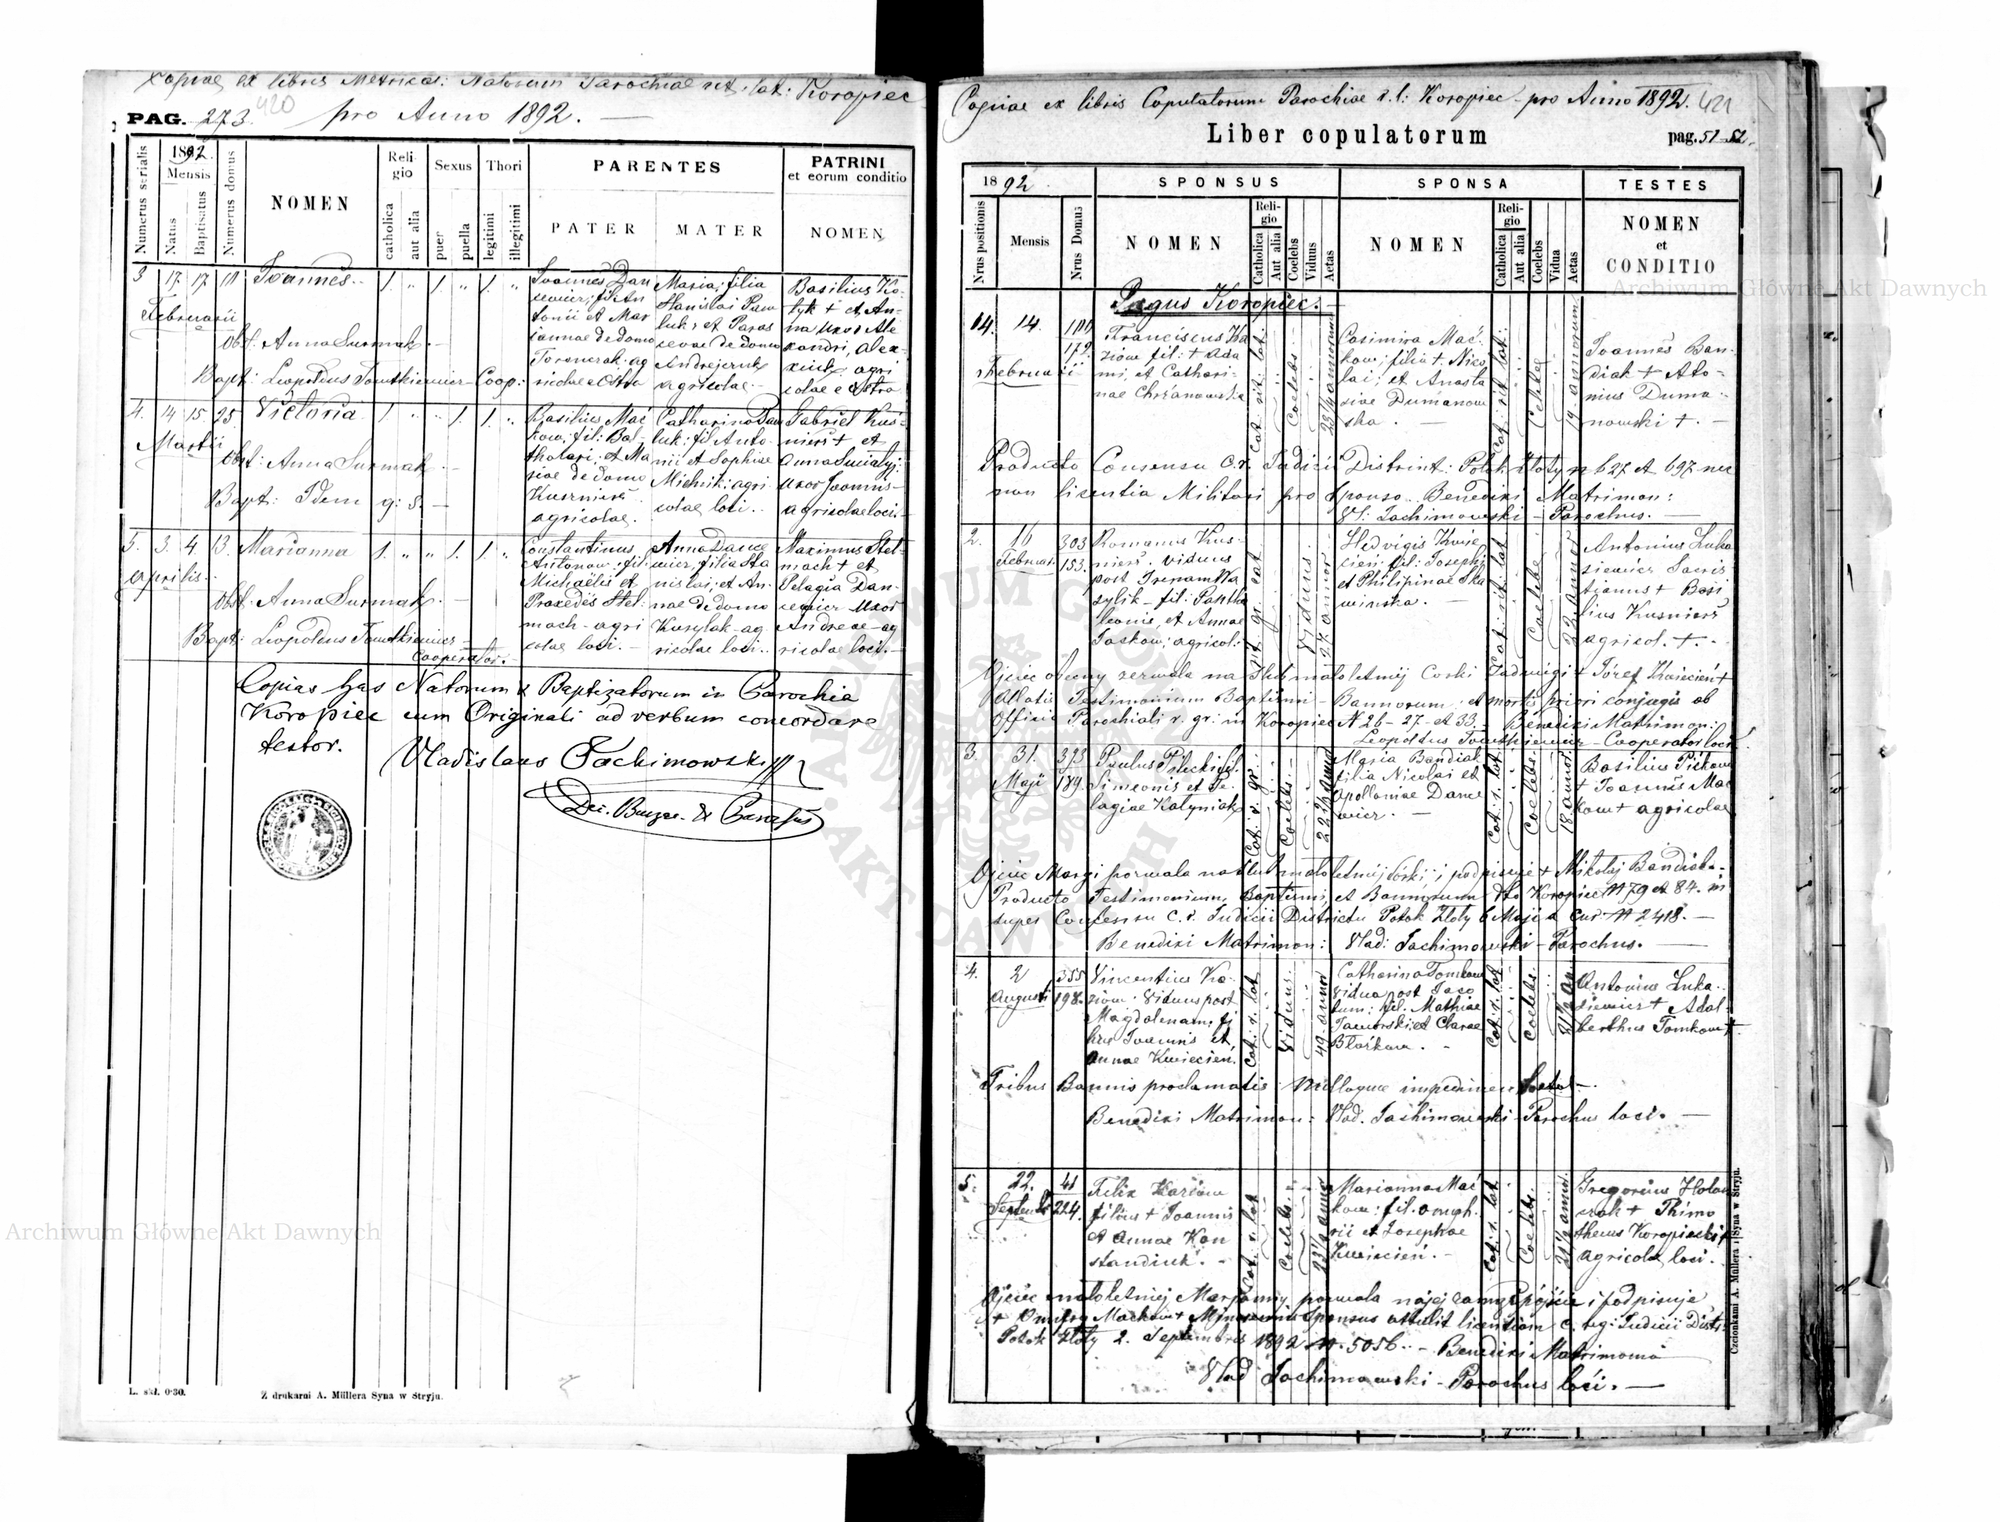 Copiae ex libris Metrices: Natorum Parochiae rit. lat: Koropiec
PAG. 273. 420 pro Anno 1892. —
Numerus serialis
1892.
Mensis
Natus
Baptisatus
Numerus domus
NOMEN
Religio
catholica
aut alia
Sexus
puer
puella
Thori
legitimi
illegitimi
PARENTES
PATER
MATER
PATRINI
et eorum conditio
NOMEN
3 17. 17. 101 Joannes. 1. „ 1. „ 1. „
Februarii
Obst: Anna Surmak. —
Bapt: Leopoldus Tomtkiewicz — Coop:
Joannes Dan
cewicz; fil An
tonii et Mar
iannae de domo
agricolae
Maria; filia
Stanislai Paw
luk; et Paras
cevae de domo
Andrejczuk
agricolae —
Basilius Ko-
tyk + et An-
na uxor Ale
xandri,
4. 14 15. 25 Victoria 1. „ „ 1. 1. „
Martii
Obst: Anna Surmak. —
Bapt: Idem q: s. —
Basilius Mać
kow; fil: Bar-
tholaei, et Ma
riae de domo
Kusznierz
agricolae.
Catharina Paw
luk; fil Anto-
nii et Sophiae
Mielnik; agri
colae loci. —
Gabriel Kus-
nierz + et
Anna
uxor Joannis —
agricolae loci —
5. 3. 4 13. Marianna 1. „ „ 1. 1. „
Aprilis.
Obst: Anna Surmak. —
Bapt: Leopoldus Tomtkiewicz —
Cooperator. —
Constantinus
Antonow; fil
Michaelis et
Praxedis Stel-
mach — agri
colae loci. —
Anna Dance
wicz, filia Sta
nislai, et An-
nae de domo
Kurylak — ag
ricolae loci. —
Maximus Stel-
mach + et
Pelagia Dan-
cewicz uxor
Andreae — ag
ricolae loci. —
Copias has Natorum & Baptizatorum in Parochia
Koropiec cum Originali ad verbum concordare
testor.
Vladislaus Jachimowski
Dec. Buczac. & Parochus
L. skł. 0·30.
Z drukarni A. Müllera Syna w Stryju.
Copiae ex libris Copulatorum Parochiae r. l: Koropiec — pro Anno 1892. 421
Liber copulatorum
pag. 51
1892
SPONSUS
SPONSA
TESTES
Nrus positionis
Mensis
Nrus Domus
NOMEN
Religio
Catholica
Aut alia
Coelebs
Viduus
Aetas
NOMEN
Religio
Catholica
Aut alia
Coelebs
Vidua
Aetas
NOMEN
et
CONDITIO
Pagus Koropiec. —
14. 14.
179.
Februarii
Franciscus Ka
ziow fil: + Ada
mi, et Cathari-
nae Chrzanowska
Cat. rit. lat.
Coelebs
Casimira Mać-
kow; filia + Nico
lai; et Anasta
siae Dumanow
ska. —
Cat. rit. lat.
Coelebs
19 annorum
Joannes Ban-
diak + Ato-
nius Duma-
nowski + . —
Producto Consensu C. r. Judicii District: Potok Złoty N 627 et 697 nec
non licentia Militari pro Sponso. Benedixi Matrimon:
Vl: Jachimowski — Parochus. —
2. 16 303
Februar. 153.
Romanus Kus-
nierz. viduus
post Irenam Wa
sylik — fil: Pantha
leonis, et Annae
Jaskow; agricol:
rit. gr. cat.
Viduus
27 annor
Hedvigis Kwie
cien; fil: Josephi
et Philipinae Ska
winska. —
Cat: rit: lat
Coelebs
22 annor
Antonius Luka
siewicz Sacris
tianus + Basi
lius Kusnierz
agricol. + . —
Ojciec obecny zezwala na Ślub małoletniej Corki Jadwigi + Józef Kwiecień +
Allatis Testimonium Baptismi — Bannorum et mortis priori conjugis ab
Officio Parochiali r. gr: in Koropiec N 26 — 27 — et 33. — Benedixi Matrimon:
Leopoldus Tomtkiewicz — Cooperator loci
3. 31. 373
Maji 189.
Paulus Pilecki fil.
Simeonis et Pe-
lagiae Hatyniak
Cat. r. gr.
Coelebs
Maria Bandiak
filia Nicolai et
Apolloniae Dance
wicz. —
Cat. r. lat.
Coelebs
18. annor.
Basilius
+ Joannes Mac
kow + agricolae
Ojciec Maryi pozwala na ślub małoletniej córki i podpisuje + Mikołaj Bandiak. —
Producto Testimonium, Baptismi, et Bannorum dto Koropiec N 79 et 84. —
super Consensu C. r. Judicii Districtu Potok Złoty 6 Maji a cur N 2418. —
Benedixi Matrimon: Vlad: Jachimowski — Parochus. —
4. 2 355
Augusti 198.
Vincentius Ka-
ziow: Viduus post
Magdalenam, fi
lius Joannis et
Annae Kwiecień.
Cat. r. lat
Viduus.
49 annor
Catharina Tomkow
vidua post Jaco
bum; fil. Mathiae
Jaworski et Clarae
Blaśkow. —
Cat. r. lat
Coelebs.
Antonius Luka-
siewicz + Adal-
berthus Tomkow +
Tribus Bannis proclamatis: Nulloque impedimento —
Benedixi Matrimon: Vlad. Jachimowski — Parochus loci. —
5. 22. 41
Septembr. 224.
Felix Kaziow
filius + Joannis
et Annae Kon
standiuk. —
Cat. r. lat
Coelebs.
Marianna Mać
kow; fil. Onuph-
rii et Josephae
Kwiecień. —
Cat. r. lat.
Coelebs.
Gregorius Holow
czak + Thimo
theus Koropiecki +
Agricolae loci. —
Ojciec małoletniej Maryanny pozwala na jej zamążpójście i podpisuje
+ Onufry Maćkow + Sponsus attulit licentiam C. reg: Judicii Distr:
Potok Złoty 2. Septembris 1892 N 5056. — Benedixi Matrimonium
Vlad Jachimowski — Parochus loci. —
Czcionkami A. Müllera i Syna w Stryju.
Archiwum Główne Akt Dawnych
Archiwum Główne Akt Dawnych
ARCHIWUM GŁÓWNE AKT DAWNYCH